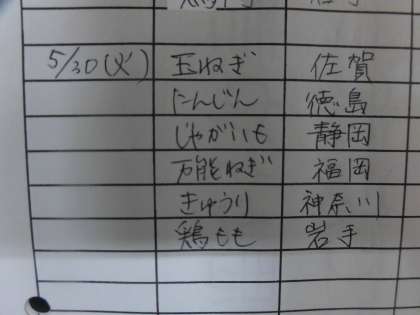 5/30(火) 玉ねぎ 佐賀
にんじん 徳島
じゃがいも 静岡
万能ねぎ 福岡
きゅうり 神奈川
鶏もも 岩手